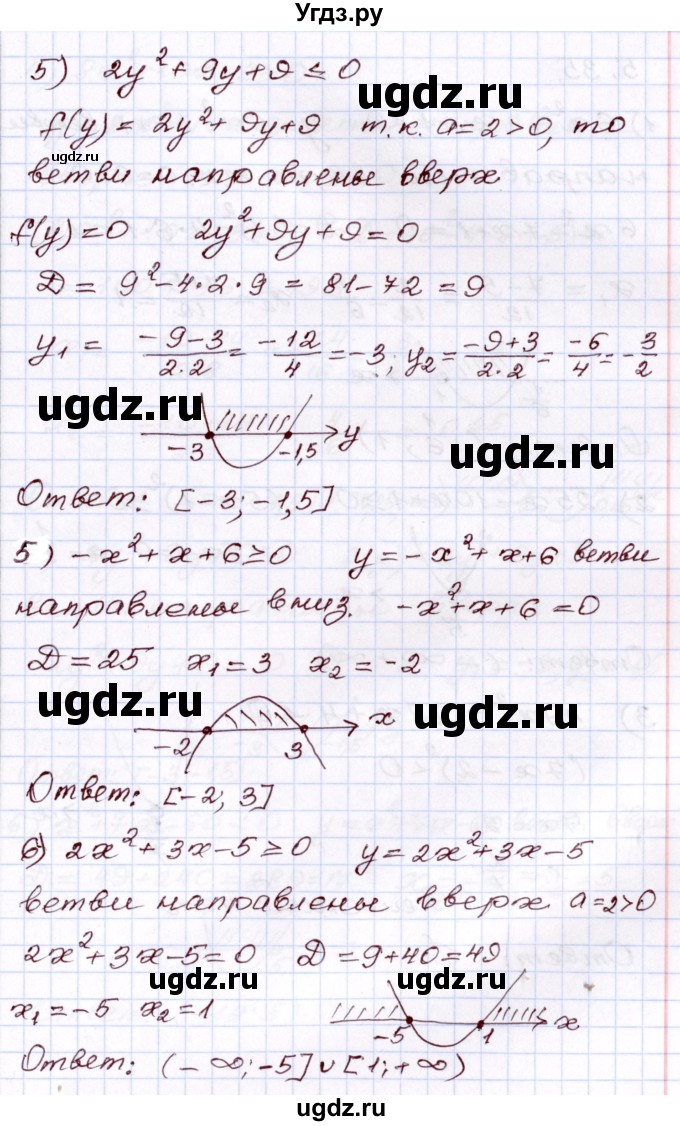 Угдз.ру
5) 2y² + 9y + 9 ≤ 0
f(y) = 2y² + 9y + 9 т.к. a = 2 > 0, то
ugdz.ru
ветви направлены вверх
f(y) = 0 2y² + 9y + 9 = 0
D = 9² - 4·2·9 = 81 - 72 = 9
y₁ = (-9-3)/(2·2) = (-12)/4 = -3; y₂ = (-9+3)/(2·2) = (-6)/4 = -3/2
ugdz.ru
-3 -1,5 y
ugdz.ru
Ответ: [-3; -1,5]
5) -x² + x + 6 ≥ 0 y = -x² + x + 6 ветви
направлены вниз. -x² + x + 6 = 0
D = 25 x₁ = 3 x₂ = -2
ugdz.ru
-2 3 x
ugdz.ru
Ответ: [-2; 3]
6) 2x² + 3x - 5 ≥ 0 y = 2x² + 3x - 5
ветви направлены вверх a = 2 > 0
2x² + 3x - 5 = 0 D = 9 + 40 = 49
ugdz.ru
ugdz.ru
x₁ = -5 x₂ = 1
-5 1 x
Ответ: (-∞; -5] ∪ [1; +∞)
ugdz.ru